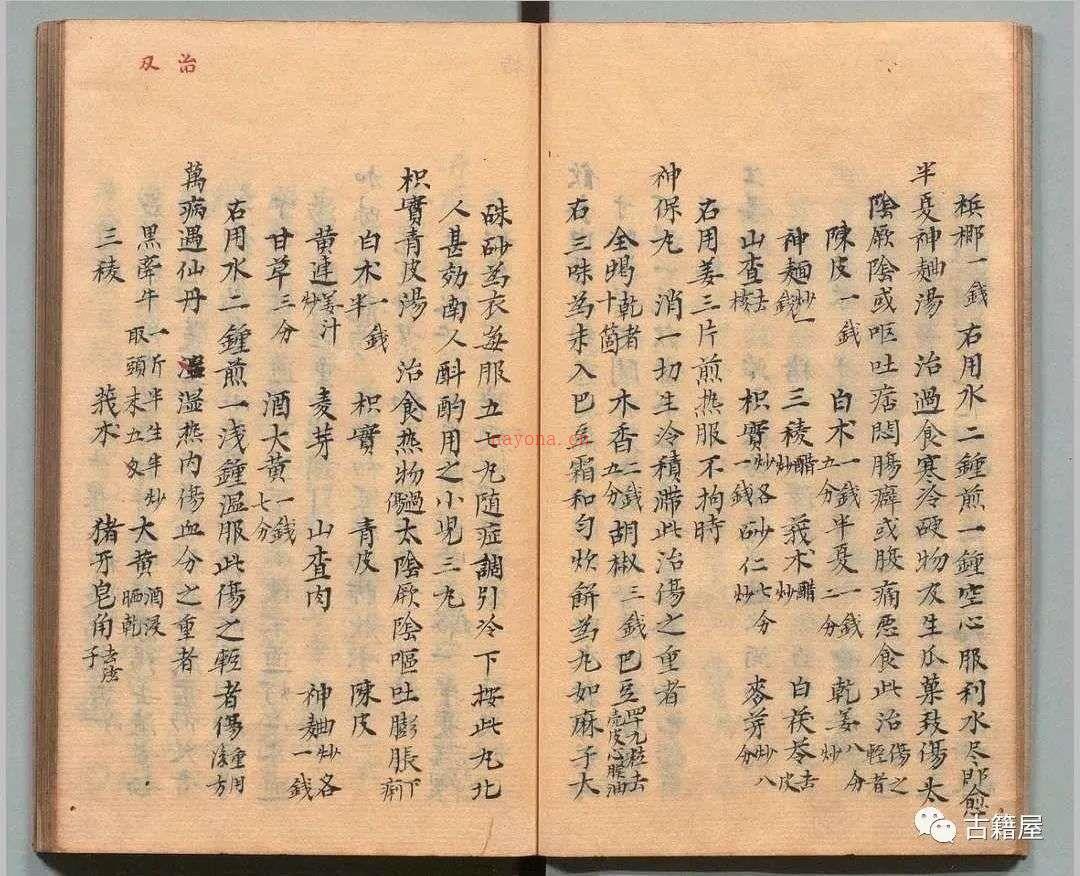 檳榔一錢 右用水二鍾煎一鍾空心服利水尽即愈
半夏神麯湯 治過食寒冷硬物及生瓜菓致傷太
陰厥陰或呕吐痞悶腸癖或腹痛恶食此治傷之輕者
陳皮一錢 白朮一錢五分 半夏一錢二分 乾姜八分炒
神麯炒一錢 三稜醋炒 莪朮醋炒 白茯苓去皮
山査去核 枳實炒各一錢 砂仁七分炒 麥芽炒八分
右用姜三片煎热服不拘時
神保丸 消一切生冷積滞此治傷之重者
全蝎乾者十箇 木香二錢五分 胡椒三錢 巴豆四十九粒去壳皮心膜油
右三味為末入巴豆霜和匀炊餅為丸如麻子大
治 及
硃砂為衣每服五七丸随症調引冷下按此丸北
人甚効南人斟酌用之小児三丸
枳實青皮湯 治食热物過傷太陰厥陰嘔吐膨脹下痢
白朮一錢半 枳實 青皮 陳皮
黄連姜汁炒 麦芽 山査肉 神麯炒各一錢
甘草三分 酒大黄一錢七分
右用水二鍾煎一浅鍾温服此傷之輕者傷重用後方
萬病遇仙丹 湿热内傷血分之重者
黒牽牛一斤半生半炒取頭末五 大黄酒浸晒乾
三稜 莪朮 猪牙皂角去皮子
nayona.cn
古籍屋